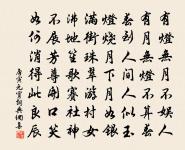 有燈無月不娛人
有月無燈不算春
春到人間人似玉
燈燒月下月如銀
滿街珠翠遊村女
沸地笙歌賽社神
不展芳尊開口笑
如何消得此良辰
唐寅元宵詩